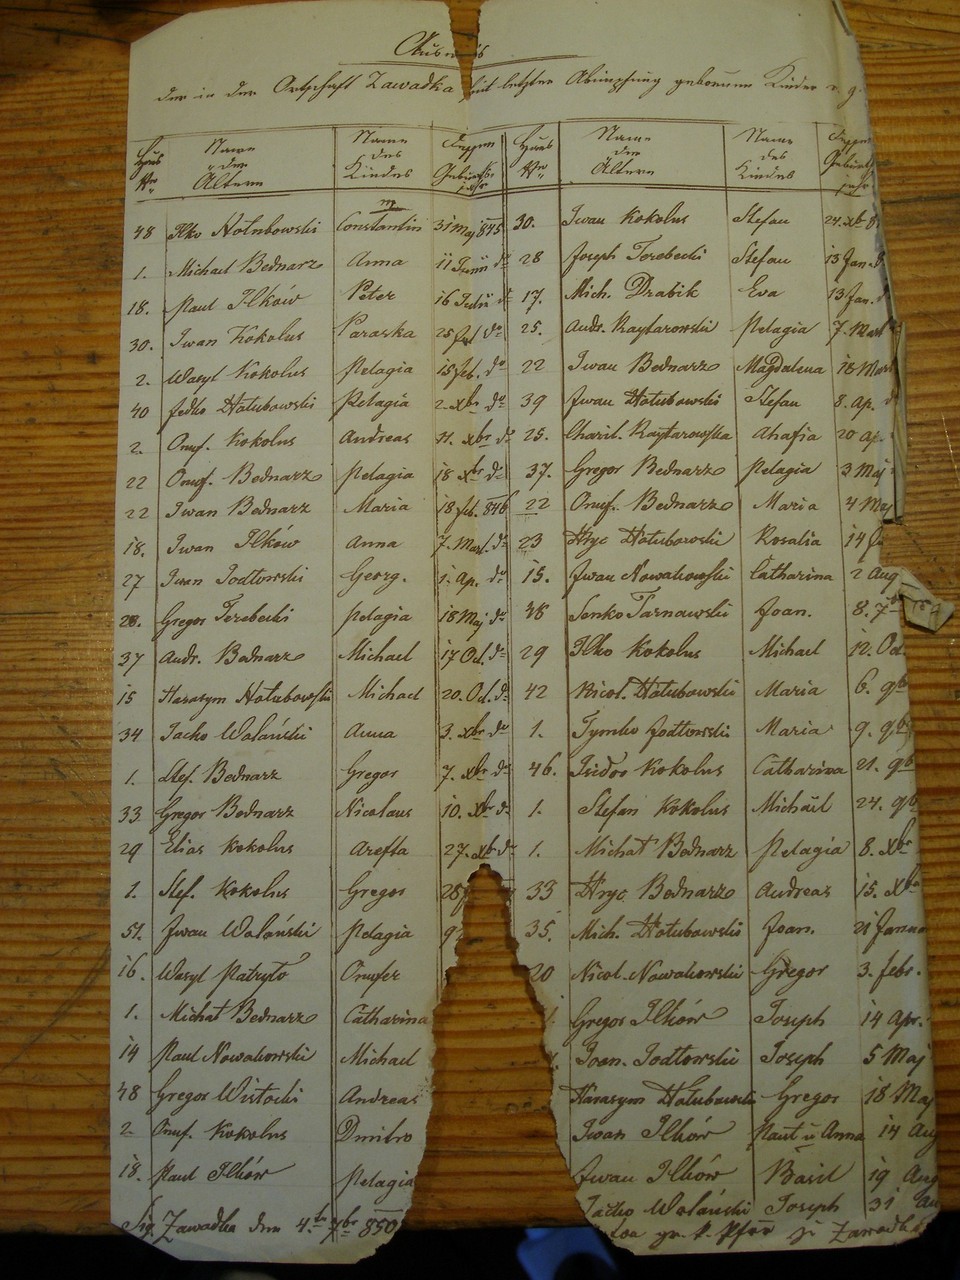 Ausweis
der in der Ortschaft Zawadka seit letzter Abimpfung gebornen Kinder
Haus Nro Name der Ältern Name des Kindes Geburtsjahr Haus Nro Name der Ältern Name des Kindes
48 Ilko Hołubowski Constantin 31 Maj 845 30. Iwan Kokolus Stefan 24. Xb
1. Michael Bednarz Anna 11 Junii do 28 Joseph Terebecki Stefan 13 Jan.
18. Paul Ilków Peter 16 do 17. Mich. Drabik Eva 13 Jan.
30. Iwan Kokolus Paraska 25 Jul do 25. Andr. Raytarowski Pelagia 7. Mart
2. Wasyl Kokolus Pelagia 15 feb. do 22 Iwan Bednarz Magdalena 18 Mart
40 Fedko Hołubowski Pelagia 2 Xbr do 39 Iwan Hołubowski Stefan 8. Ap.
2. Onuf. Kokolus Andreas 11. Xbr do 25. Charit. Raytarowska Ahafia 20 Ap.
22 Onuf. Bednarz Pelagia 18 Xbr do 37. Gregor Bednarz Pelagia 3 Maj
22 Iwan Bednarz Maria 18 feb. 846 22 Onuf. Bednarz Maria 4 Maj
18. Iwan Ilków Anna 7. Mart. do 23 Hryc Hołubowski Rosalia 14
27 Iwan Jodłowski Georg. 1. Ap. do 15. Iwan Nowakowski Catharina 2 Aug
28. Gregor Terebecki Pelagia 18 Maj do 38 Senko Tarnawski Joan. 8. 7
37 Andr. Bednarz Michael 17 Oct. do 29 Ilko Kokolus Michael 12. Oct
15 Harasym Hołubowski Michael 20. Oct. do 42 Nicol. Hołubowski Maria 6. 9b
34 Jacko Wołański Anna 3. Xbr do 1. Tymko Jodłowski Maria 9. 9b
1. Stef. Bednarz Gregor 7. Xbr do 46. Isidor Kokolus Catharina 21. 9b
33 Gregor Bednarz Nicolaus 10. Xbr do 1. Stefan Kokolus Michaël 24. 9b
29 Elias Kokolus Arefta 27. Xb do 1. Michał Bednarz Pelagia 8. Xbr
1. Stef. Kokolus Gregor 28 33 Hryc Bednarz Andreas 15. Xb
51. Iwan Wołański Pelagia 9 35. Mich. Hołubowski Joan. 21 Janua
16. Wasyl Patryło Onufer 20 Nicol. Nowakowski Gregor 3. febr.
1. Michał Bednarz Catharina Gregor Ilków Joseph 14 Apr.
14 Paul Nowakowski Michael Joan. Jodłowski Joseph 5 Maj
48 Gregor Wistocki Andreas Harasym Hołubowski Gregor 18 Maj
2. Onuf. Kokolus Dmitro Iwan Ilków Paul u Anna 14 Aug
18. Paul Ilków Pelagia Iwan Ilków Basil 19 Aug
Jacko Wołański Joseph 31 Au
Sig. Zawadka den 4ten 7br 850 Zawadka